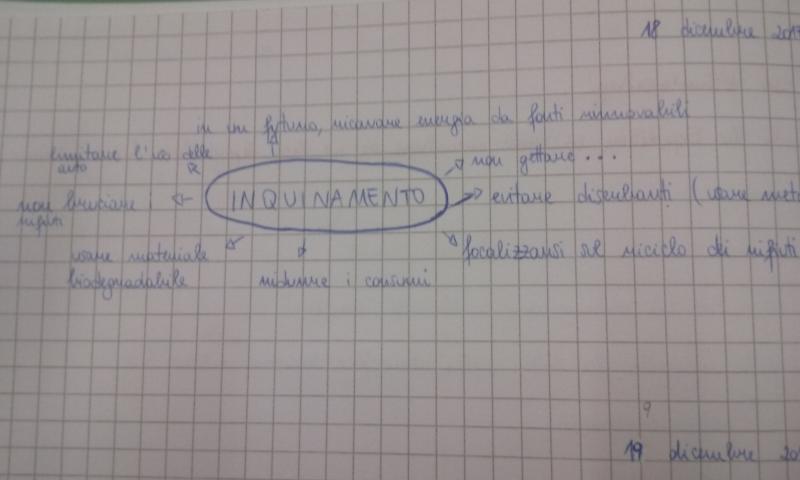 18 dicembre 2017
in un futuro, ricavare energia da fonti rinnovabili
limitare l'uso delle
auto
non gettare ...
INQUINAMENTO
non bruciare i
rifiuti
evitare diserbanti (usare
focalizzarsi sul riciclo dei rifiuti
usare materiale
biodegradabile
ridurre i consumi
9
19 dicembre 20